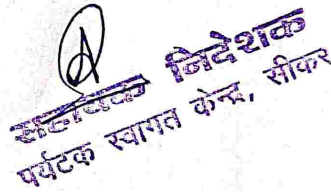 सहायक निदेशक
पर्यटक स्वागत केन्द्र, सीकर